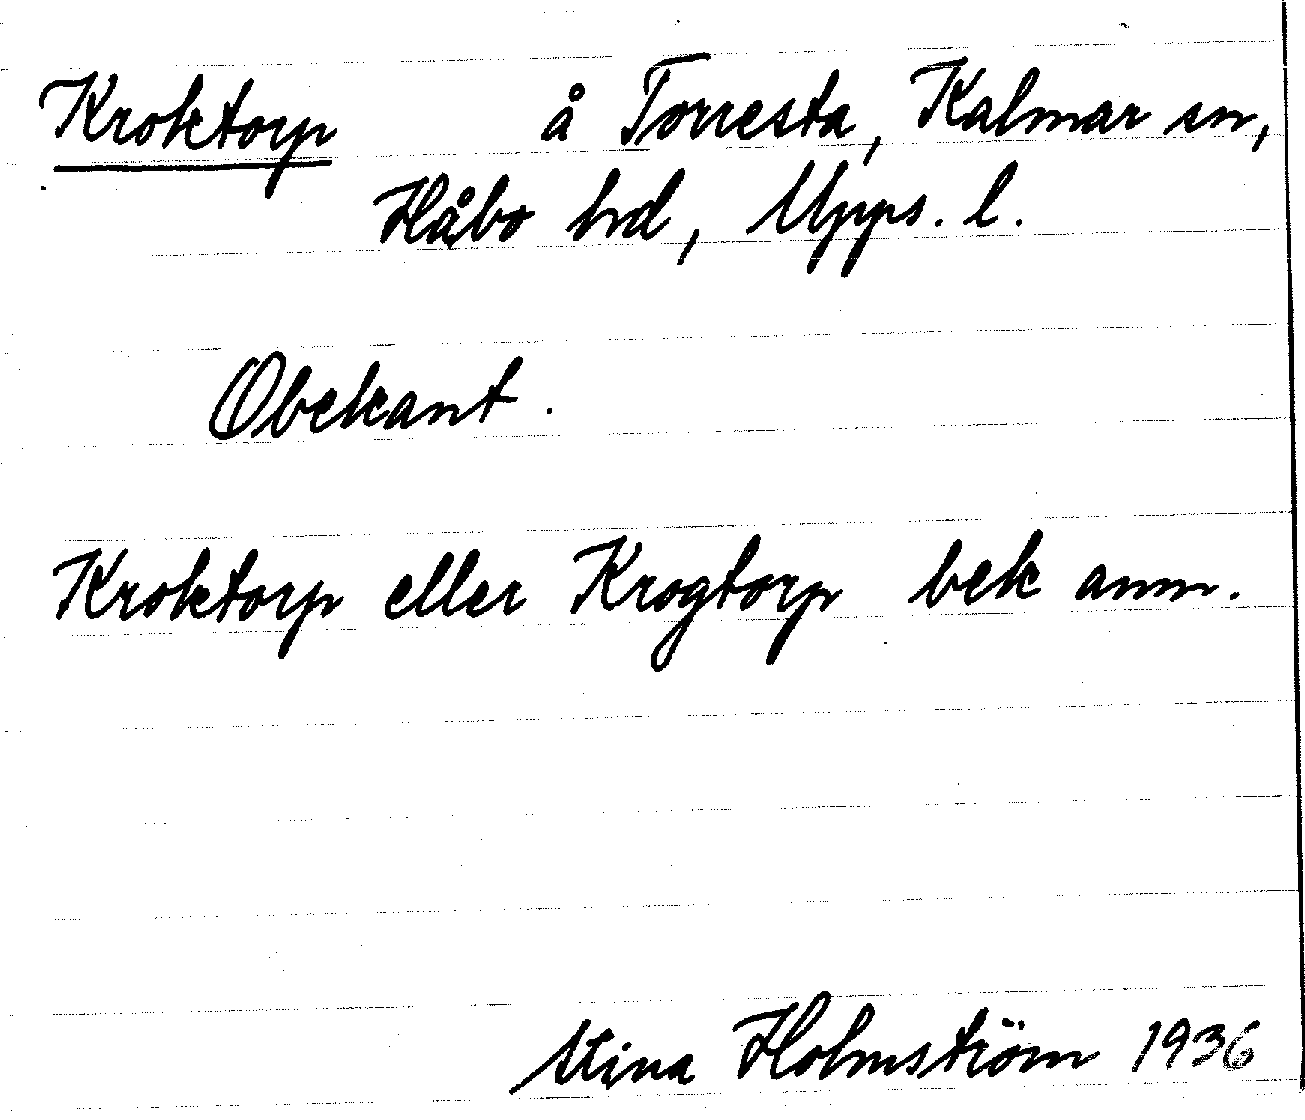 Kroktorp å Torresta, Kalmar sn,
Håbo hd, Upps. l.
Obekant.
Kroktorp eller Krogtorp bek anm.
Stina Holmström 1936